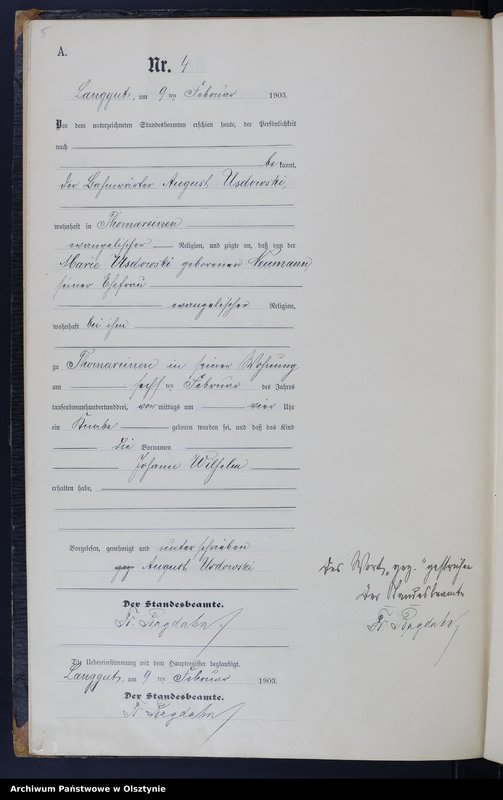 5
A.
Nr. 4
Langgut, am 9 ten Februar 1903.
Vor dem unterzeichneten Standesbeamten erschien heute, der Persönlichkeit
nach
be kannt,
der Bahnwärter August Usdowski
wohnhaft in Thomareinen
evangelischer Religion, und zeigte an, daß von der
Marie Usdowski geborenen Neumann
seiner Ehefrau
evangelischer Religion,
wohnhaft bei ihm
zu Thomareinen in seiner Wohnung
am sechs ten Februar des Jahres
tausendneunhundertunddrei, vor mittags um vier Uhr
ein Knabe geboren worden sei, und daß das Kind
die Vornamen
Johann Wilhelm
erhalten habe.
Vorgelesen, genehmigt und unterschrieben
gez. August Usdowski
Der Standesbeamte.
Fr. Bagdahn
Die Uebereinstimmung mit dem Hauptregister beglaubigt.
Langgut, am 9 ten Februar 1903.
Der Standesbeamte.
Fr. Bagdahn
Das Wort „gez." gestrichen
Der Standesbeamte
Fr. Bagdahn
Archiwum Państwowe w Olsztynie